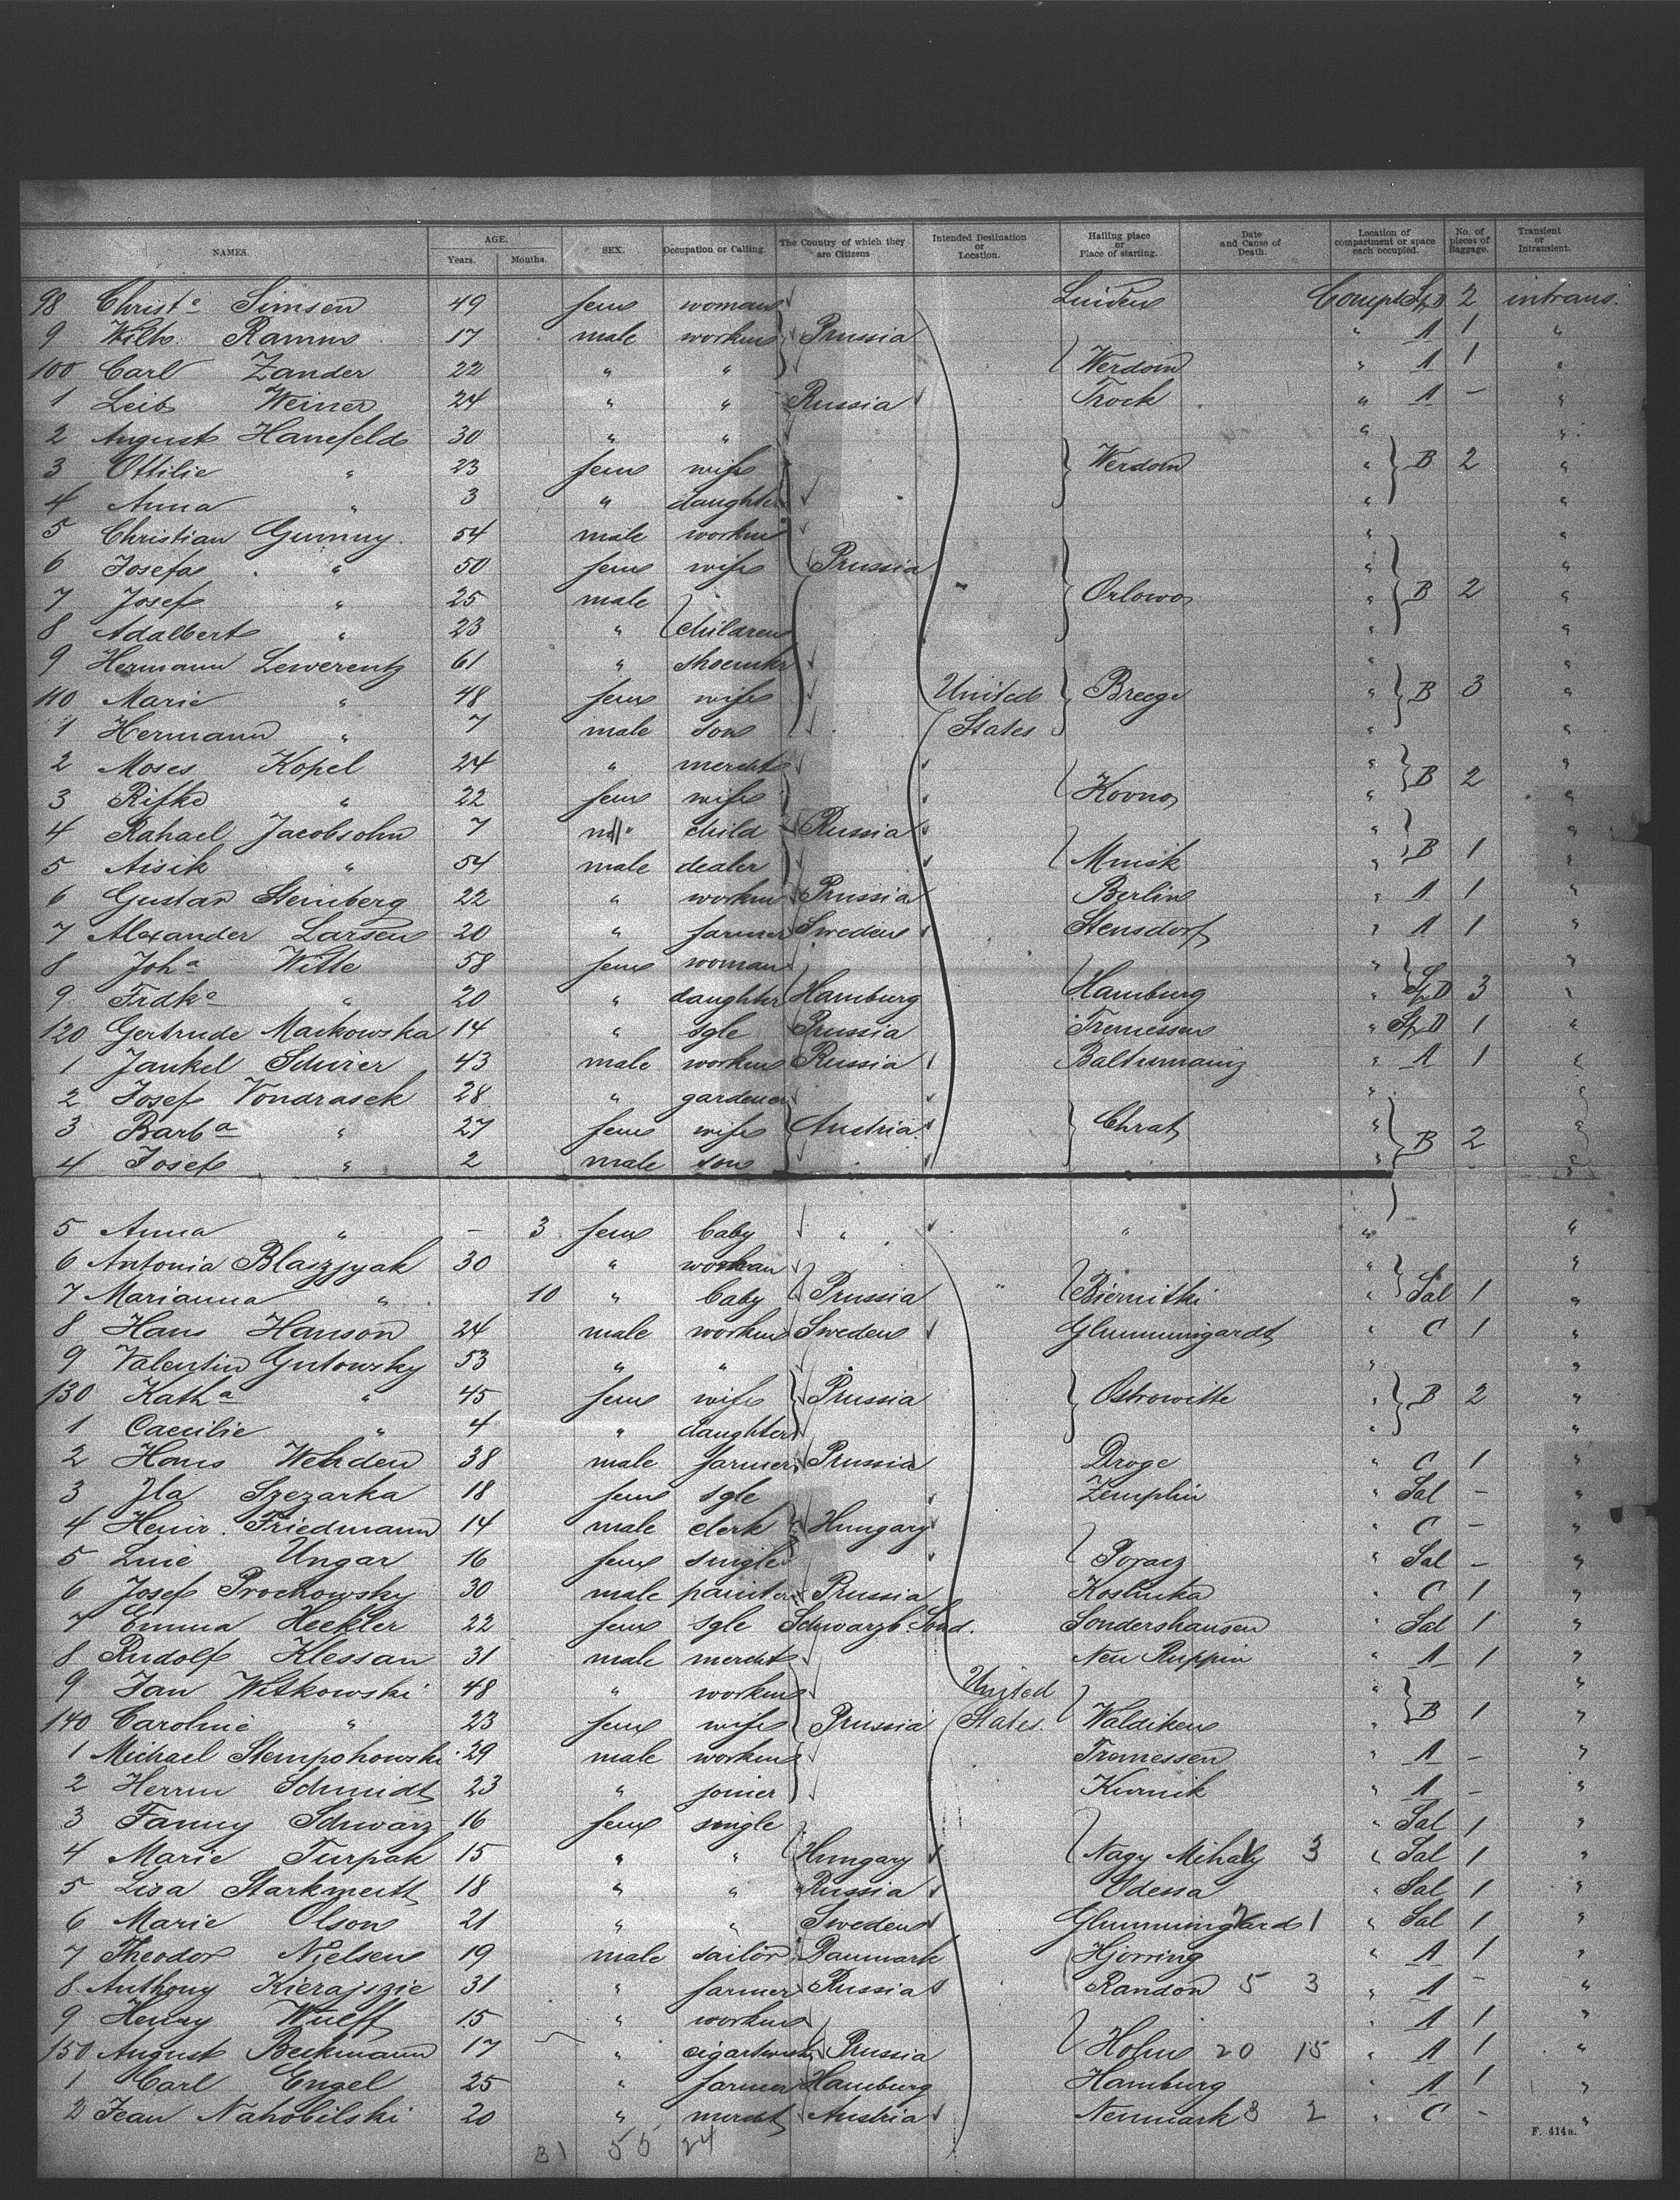 NAMES. AGE. Years. Months. SEX. Occupation or Calling. The Country of which they are Citizens Intended Destination or Location. Hailing place or Place of starting. Date and Cause of Death. Location of compartment or space each occupied. No. of pieces of Baggage. Transient or Intransient.
98 Christ^e Simsen 49 fem woman 2 intrans.
9 Wilh. Ramm 17 male workm Prussia " A 1 "
100 Carl Zander 22 " " Werdom " A 1 "
1 Leib Weiner 24 " " Russia Trock " A - "
2 August Hanefeld 30 " " " "
3 Ottilie " 23 fem wife Werdom " B 2 "
4 Anna " 3 " daughter " "
5 Christian Gumny 54 male workm " "
6 Josefa " 50 fem wife Prussia " "
7 Josef " 25 male Orlowo " B 2 "
8 Adalbert " 23 " children " "
9 Hermann Lewerentz 61 " shoemkr " "
110 Marie " 48 fem wife United Breege " B 3 "
1 Hermann " 7 male son States " "
2 Moses Kopel 24 " mercht " B 2 "
3 Rifke " 22 fem wife Kovno " "
4 Rahael Jacobsohn 7 child Russia " "
5 Aisik " 54 male dealer Minsk " B 1 "
6 Gustav Steinberg 22 " workm Prussia Berlin " A 1 "
7 Alexander Larsen 20 " farmer Sweden Stensdorf " A 1 "
8 Joh^a Witte 58 fem woman " "
9 Frdk^e " 20 " daughter Hamburg Hamburg " 3 "
120 Gertrude Markowska 14 " sgle Prussia Tremessen " 1 "
1 Jankel Schrier 43 male workm Russia " A 1 "
2 Josef Vondrasek 28 " gardener " "
3 Barb^a " 27 fem wife Austria Chrat " B 2 "
4 Josef " 2 male son " "
5 Anna " - 3 fem baby " " " "
6 Antonia Blaszyak 30 " woman " "
7 Marianna " 10 " baby Prussia " Biernitki " Sal 1 "
8 Hans Hanson 24 male workm Sweden Glummingardt " C 1 "
9 Valentin Gutowsky 53 " " " "
130 Kath^a " 45 fem wife Prussia Ostrowitte " B 2 "
1 Caecilie " 4 " daughter " "
2 Hans Wehden 38 male farmer Prussia Droge " C 1 "
3 Ila Szezarka 18 fem sgle Zemplin " Sal - "
4 Heinr. Friedmann 14 male clerk Hungary " C - "
5 Linie Ungar 16 fem single Poracz " Sal - "
6 Josef Prochowsky 30 male painter Prussia Koslinka " C 1 "
7 Emma Heckler 22 fem sgle Schwarzb. Sond. Sondershausen " Sal 1 "
8 Rudolf Klessan 31 male mercht Neu Ruppin " A 1 "
9 Jan Witkowski 48 " workm United " "
140 Caroline " 23 fem wife Prussia States. Waldiken " B 1 "
1 Michael Stempohowski 29 male workm Tremessen " A - "
2 Herrm Schmidt 23 " joiner Kurnik " A - "
3 Fanny Schwarz 16 fem single " Sal 1 "
4 Marie Turpak 15 " " Hungary Nagy Mihaly 3 " Sal 1 "
5 Lisa Starkmeth 18 " " Russia Odessa " Sal 1 "
6 Marie Olson 21 " " Sweden Glummingard 1 " Sal 1 "
7 Theodor Nielsen 19 male sailor Danmark Hjorring " A 1 "
8 Anthony Kierajszie 31 " farmer Russia Randon 5 3 " A - "
9 Henry Wulff 15 " workm " A 1 "
150 August Beckmann 17 " Prussia Holm 20 15 " A 1 "
1 Carl Engel 25 " farmer Hamburg Hamburg " A 1 "
2 Jean Nahobilski 20 " mercht Austria Neumark 3 2 " C - "
31 55 24
F. 414a.